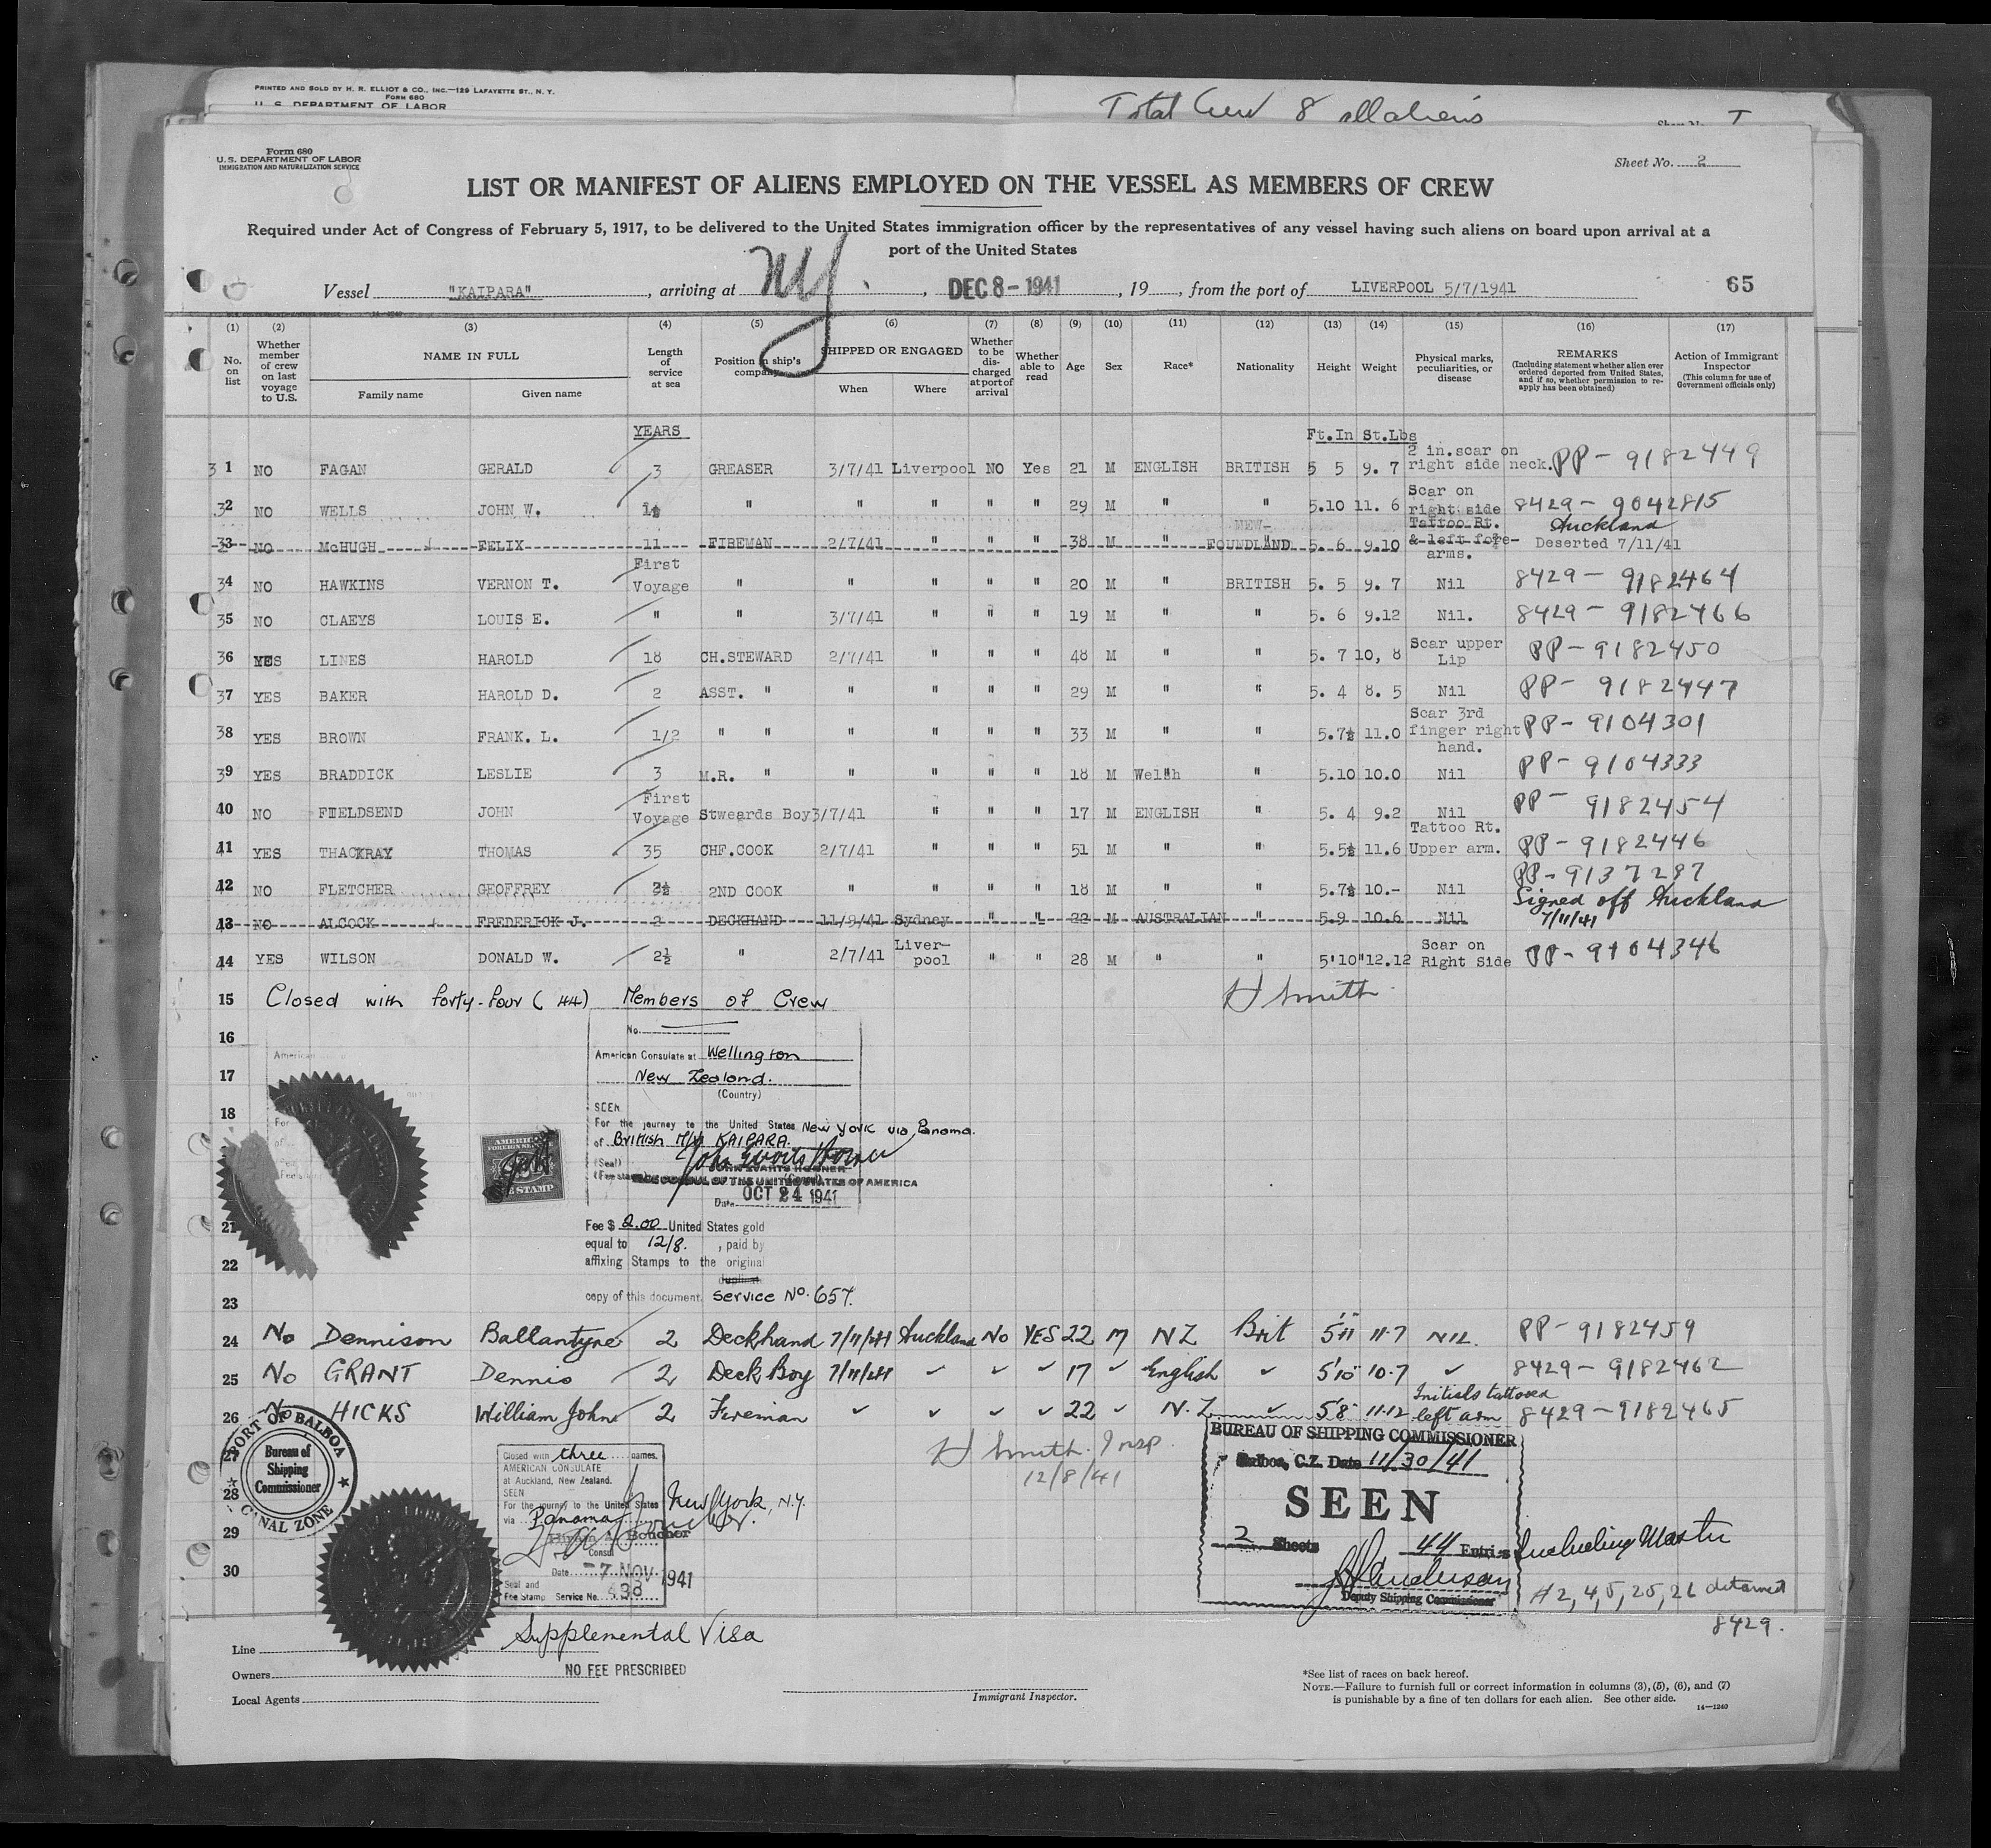 PRINTED AND SOLD BY H. R. ELLIOT & CO., INC.—129 LAFAYETTE ST., N. Y.
FORM 680
U. S. DEPARTMENT OF LABOR
Total Crew 8 all aliens
Form 680
U.S. DEPARTMENT OF LABOR
IMMIGRATION AND NATURALIZATION SERVICE
Sheet No. 2
LIST OR MANIFEST OF ALIENS EMPLOYED ON THE VESSEL AS MEMBERS OF CREW
Required under Act of Congress of February 5, 1917, to be delivered to the United States immigration officer by the representatives of any vessel having such aliens on board upon arrival at a
port of the United States
Vessel "KAIPARA", arriving at NY, DEC 8-1941, 19, from the port of LIVERPOOL 5/7/1941 65
(1) (2) (3) (4) (5) (6) (7) (8) (9) (10) (11) (12) (13) (14) (15) (16) (17)
No. on list
Whether member of crew on last voyage to U.S.
NAME IN FULL
Family name Given name
Length of service at sea
Position in ship's company
SHIPPED OR ENGAGED
When Where
Whether to be discharged at port of arrival
Whether able to read
Age Sex Race* Nationality Height Weight
Physical marks, peculiarities, or disease
REMARKS
(Including statement whether alien ever ordered deported from United States, and if so, whether permission to reapply has been obtained)
Action of Immigrant Inspector
(This column for use of Government officials only)
YEARS Ft.In St.Lbs
31 NO FAGAN GERALD 3 GREASER 3/7/41 Liverpool NO Yes 21 M ENGLISH BRITISH 5 5 9. 7 2 in.scar on right side neck. PP- 9182449
32 NO WELLS JOHN W. 1½ " " " " " 29 M " " 5.10 11. 6 Scar on right side 8429- 9042815
33 NO McHUGH FELIX 11 FIREMAN 2/7/41 " " " 38 M " NEW-FOUNDLAND 5. 6 9.10 Tattoo Rt. & left fore-arms. Auckland Deserted 7/11/41
34 NO HAWKINS VERNON T. First Voyage " " " " " 20 M " BRITISH 5. 5 9. 7 Nil 8429- 9182464
35 NO CLAEYS LOUIS E. " " 3/7/41 " " " 19 M " " 5. 6 9.12 Nil. 8429- 9182466
36 YES LINES HAROLD 18 CH.STEWARD 2/7/41 " " " 48 M " " 5. 7 10, 8 Scar upper Lip PP-9182450
37 YES BAKER HAROLD D. 2 ASST. " " " " " 29 M " " 5. 4 8. 5 Nil PP- 9182447
38 YES BROWN FRANK. L. 1/2 " " " " " " 33 M " " 5.7½ 11.0 Scar 3rd finger right hand. PP- 9104301
39 YES BRADDICK LESLIE 3 M.R. " " " " " 18 M Welsh " 5.10 10.0 Nil PP- 9104333
40 NO FIELDSEND JOHN First Voyage Stweards Boy 3/7/41 " " " 17 M ENGLISH " 5. 4 9.2 Nil PP- 9182454
41 YES THACKRAY THOMAS 35 CHF.COOK 2/7/41 " " " 51 M " " 5.5½ 11.6 Tattoo Rt. Upper arm. PP-9182446
42 NO FLETCHER GEOFFREY 3½ 2ND COOK " " " " 18 M " " 5.7½ 10.- Nil PP-9137287
43 NO ALCOCK FREDERICK J. 2 DECKHAND 11/9/41 Sydney " " 22 M AUSTRALIAN " 5.9 10.6 Nil Signed off Auckland 7/11/41
44 YES WILSON DONALD W. 2½ " 2/7/41 Liver-pool " " 28 M " " 5'10" 12.12 Scar on Right Side PP-9104346
15 Closed with forty-four (44) Members of Crew H Smith
16
17
18
21
22
23
No.
American Consulate at Wellington
New Zealand.
(Country)
SEEN
For the journey to the United States New York via Panama.
of British M/V KAIPARA.
(Seal)
John Evarts Horner
JOHN EVARTS HORNER
VICE CONSUL OF THE UNITED STATES OF AMERICA
Date OCT 24 1941
Fee $ 2.00 United States gold
equal to 12/8. , paid by
affixing Stamps to the original
duplicate
copy of this document. Service No. 657.
24 No Dennison Ballantyne 2 Deckhand 7/11/41 Auckland No YES 22 M NZ Brit 5'11 11·7 NIL PP-9182459
25 No GRANT Dennis 2 Deck Boy 7/11/41 17 English 5'10" 10·7 8429-9182462
26 No HICKS William John 2 Fireman 22 N.Z. 5'8 11·12 Initials tattooed left arm 8429-9182465
27
28
29
30
PORT OF BALBOA
Bureau of Shipping Commissioner
CANAL ZONE
Closed with three names.
AMERICAN CONSULATE
at Auckland, New Zealand.
SEEN
For the journey to the United States New York, N.Y.
via Panama
Boucher
Consul
Date 7 NOV 1941
Seal and
Fee Stamp Service No. 438
H Smith. Insp.
12/8/41
BUREAU OF SHIPPING COMMISSIONER
Balboa, C.Z. Date 11/30/41
SEEN
2 Sheets 44 Entries Including Master
Deputy Shipping Commissioner
#2, 4, 5, 25, 26 detained
8429.
Supplemental Visa
NO FEE PRESCRIBED
Line
Owners
Local Agents
Immigrant Inspector.
*See list of races on back hereof.
NOTE.—Failure to furnish full or correct information in columns (3), (5), (6), and (7)
is punishable by a fine of ten dollars for each alien. See other side.
14—1240